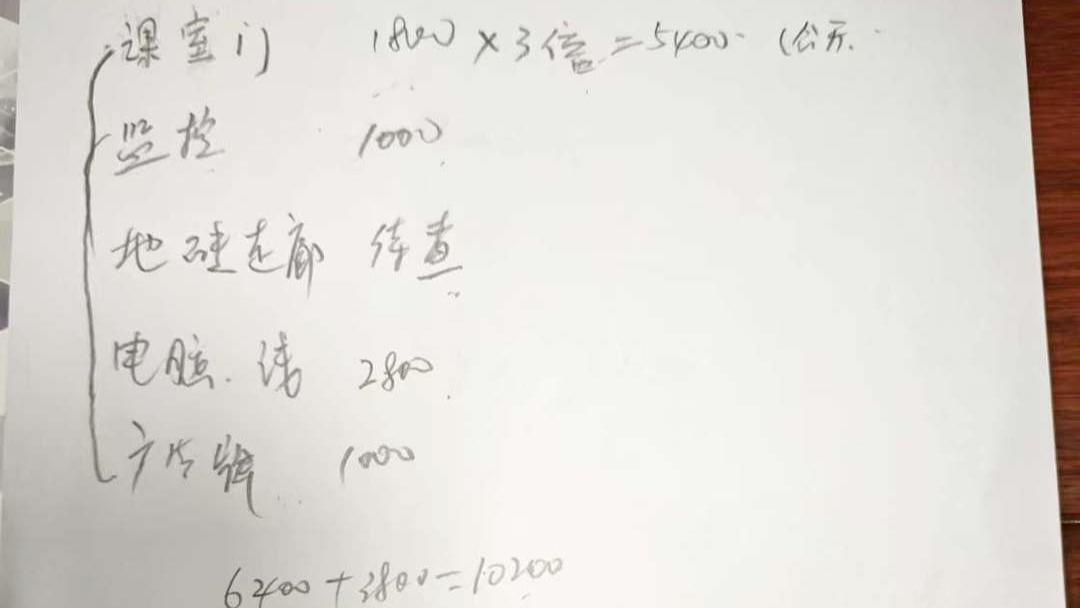 课室门 1800×3倍=5400 (公示.
监控 1000
地 走廊 待查
电脑. 线 2800
广告牌 1000
6400+3800=10200